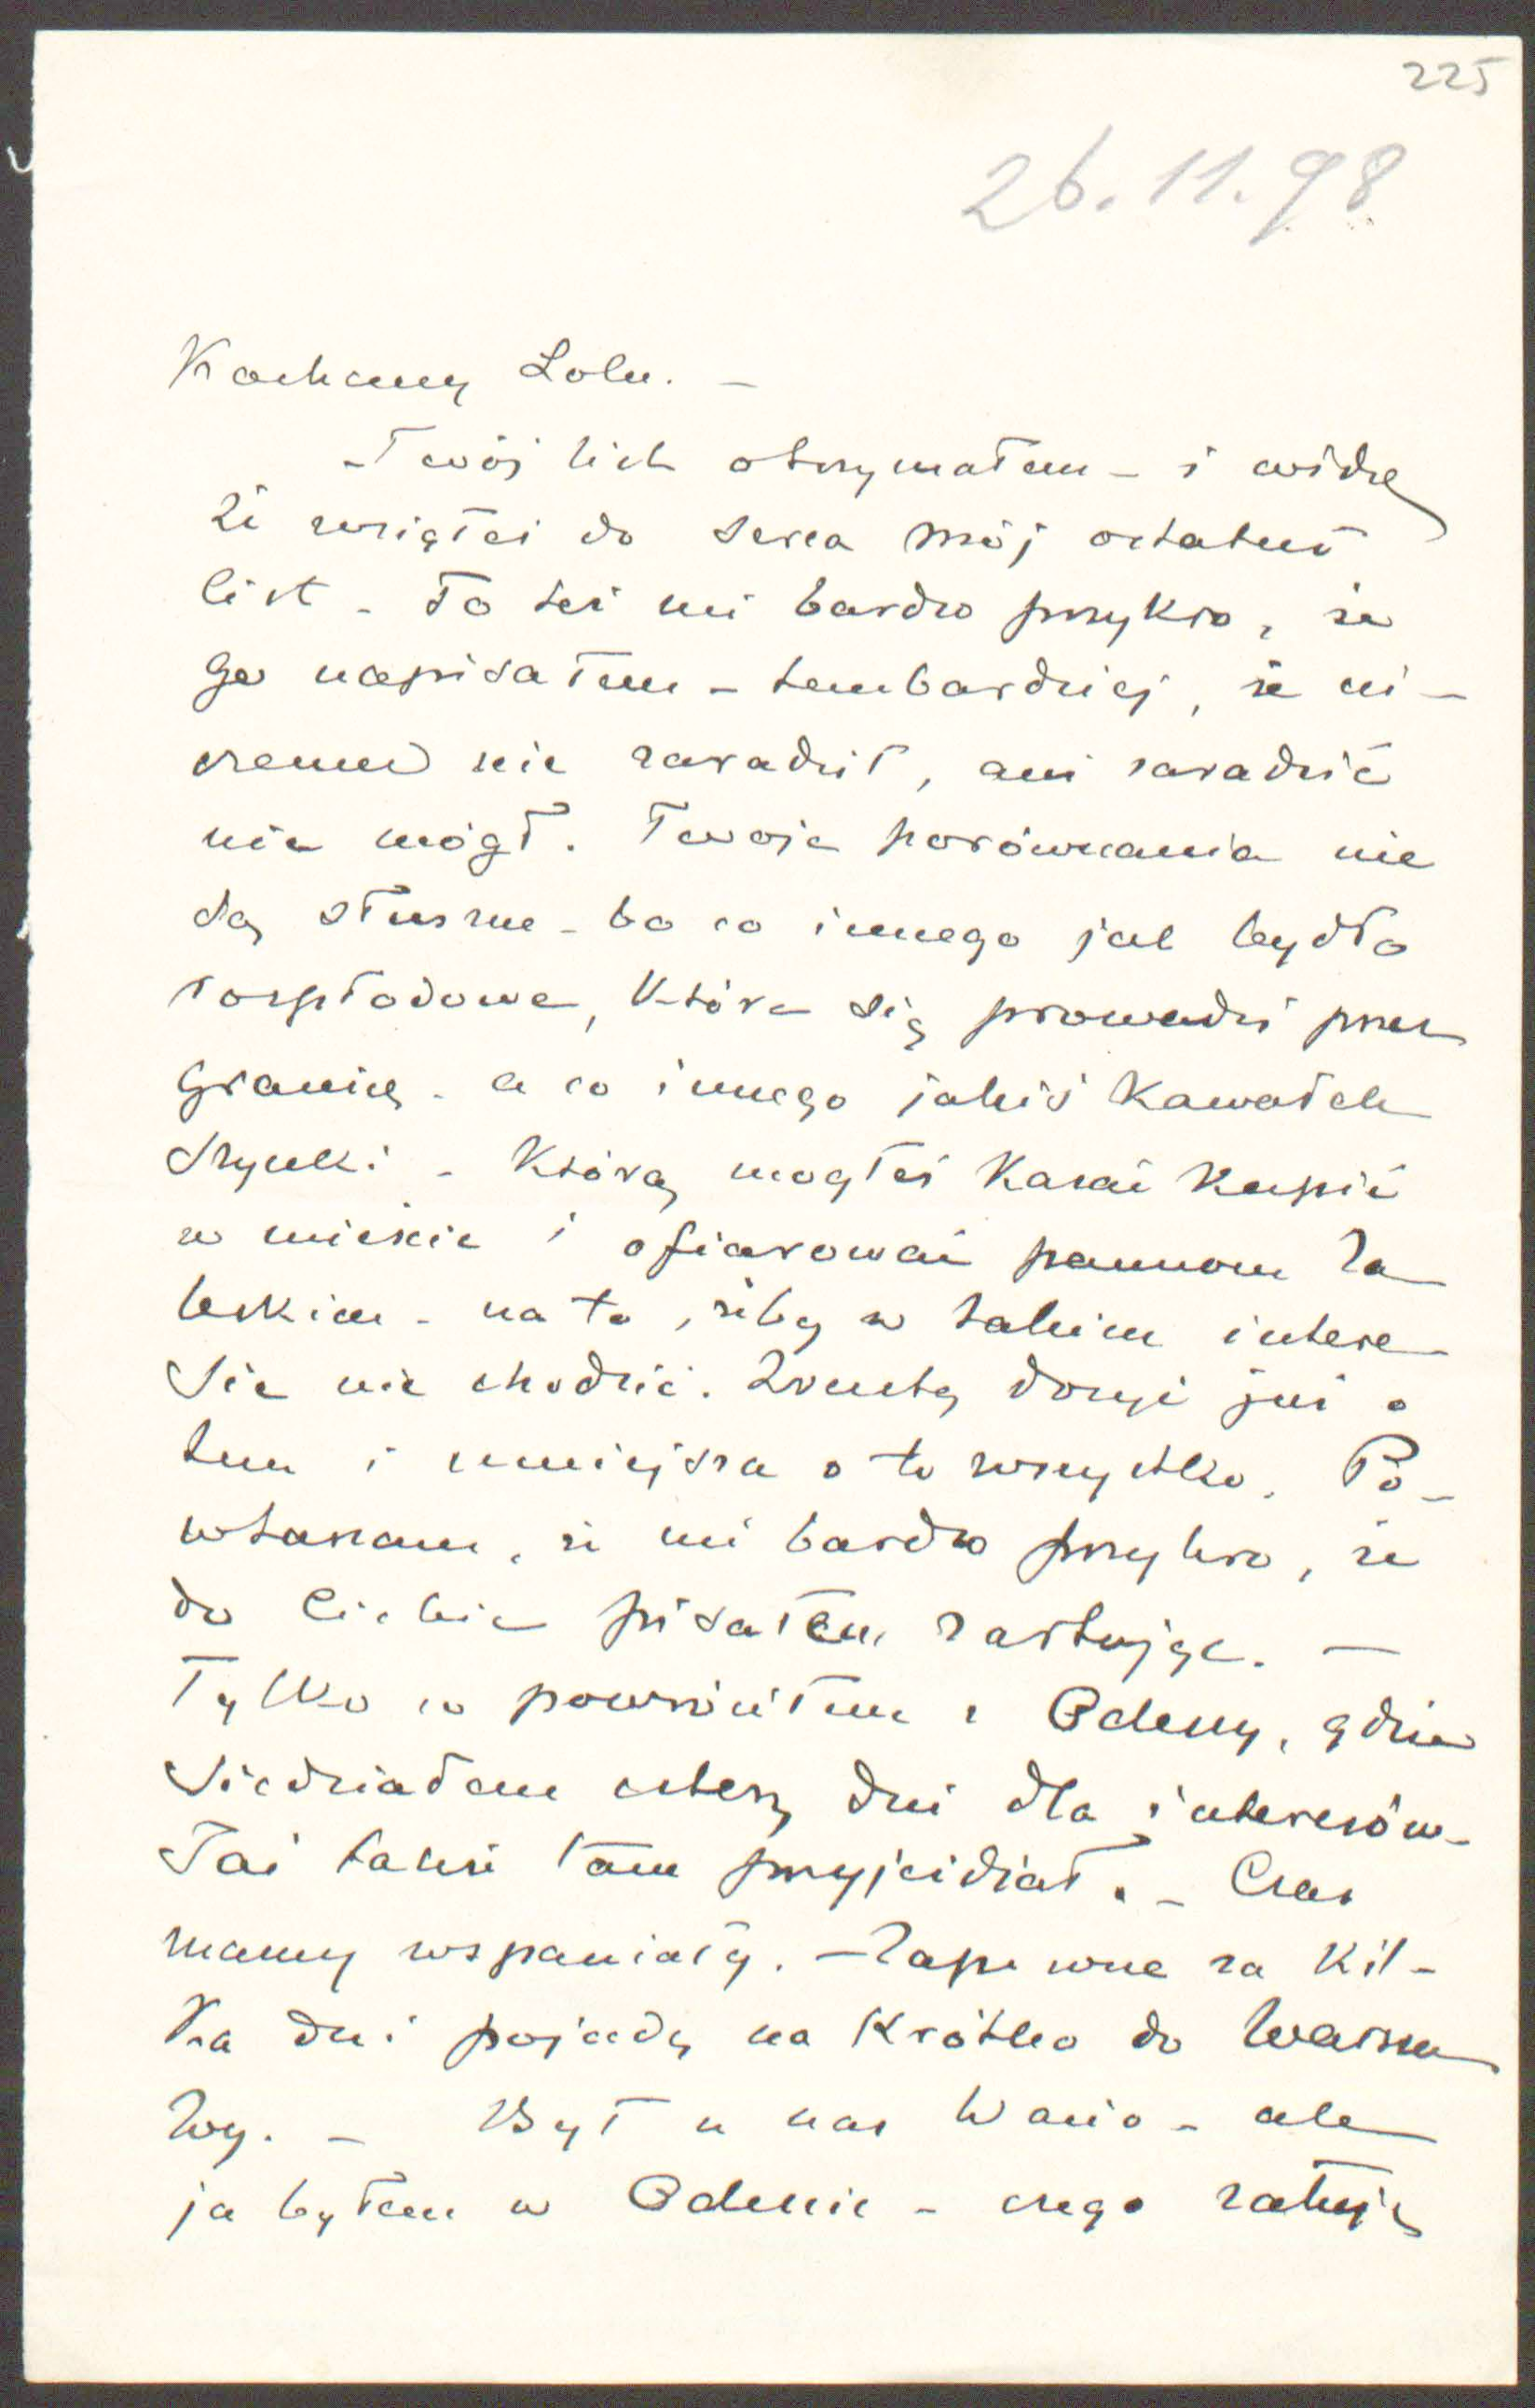 225
26.11.98
Kochany Lolu. –
Twój list otrzymałem – i widzę
że wziąłeś do serca mój ostatni
list – To też mi bardzo przykro, że
go napisałem – tembardziej, że ni-
czemu nie zaradził, ani zaradzić
nie mógł. Twoje porównania nie
są słuszne – bo co innego jak bydło
rozpłodowe, które się prowadzi przez
granicę – a co innego jakiś kawałek
szynki – którą mogłeś kazać kupić
w mieście i ofiarować pannom Za
leskim – na to, żeby w takim intere
sie nie chodzić. Zresztą dosyć już o
tem i mniejsza o to wszystko. Po-
wtarzam, że mi bardzo przykro, że
do Ciebie pisałem żartując. –
Tylko co powróciłem z Odessy, gdzie
siedziałem cztery dni dla interesów –
Taż także tam przyjeżdżał. – Czas
mamy wspaniały. – Zapewne za kil-
ka dni pojadę na krótko do Warsza
wy. – Był u nas Wasio – ale
ja byłem w Odessie – czego żałuję